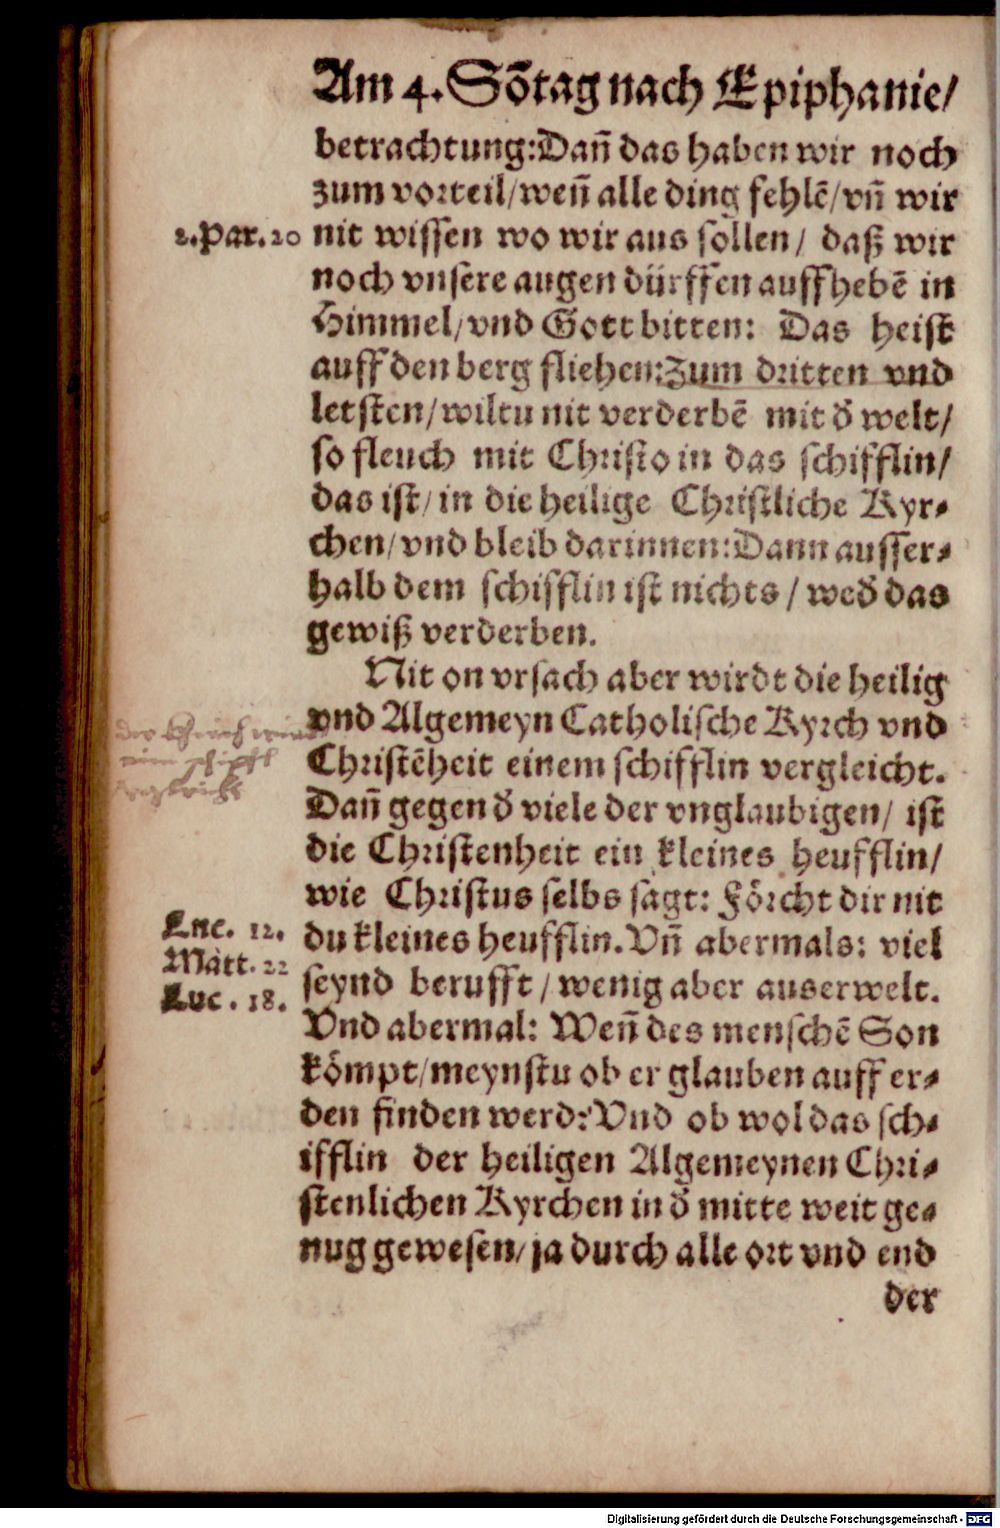 Am 4. Sõtag nach Epiphanie/
betrachtung: Dañ das haben wir noch
zum vorteil/ weñ alle ding fehlẽ/ vñ wir
2. Par. 20 nit wissen wo wir aus sollen/ daß wir
noch vnsere augen dürffen auffhebẽ in
Himmel/ vnd Gott bitten: Das heist
auff den berg fliehen: Zum dritten vnd
letsten/ wiltu nit verderbẽ mit d̓ welt/
so fleuch mit Christo in das schifflin/
das ist/ in die heilige Christliche Kyr⸗
chen/ vnd bleib darinnen: Dann ausser⸗
halb dem schifflin ist nichts/ wed̓ das
gewiß verderben.
Nit on vrsach aber wirdt die heilig
vnd Algemeyn Catholische Kyrch vnd
Christẽheit einem schifflin vergleicht.
Dañ gegen d̓ viele der vnglaubigen/ ist
die Christenheit ein kleines heufflin/
wie Christus selbs sagt: Förcht dir nit
Luc. 12. du kleines heufflin. Vñ abermals: viel
Matt. 22 seynd berufft/ wenig aber auserwelt.
Luc. 18. Vnd abermal: Weñ des menschẽ Son
kömpt/ meynstu ob er glauben auff er⸗
den finden werd: Vnd ob wol das sch⸗
ifflin der heiligen Algemeynen Chri⸗
stenlichen Kyrchen in d̓ mitte weit ge⸗
nug gewesen/ ja durch alle ort vnd end
der
Digitalisierung gefördert durch die Deutsche Forschungsgemeinschaft - DFG